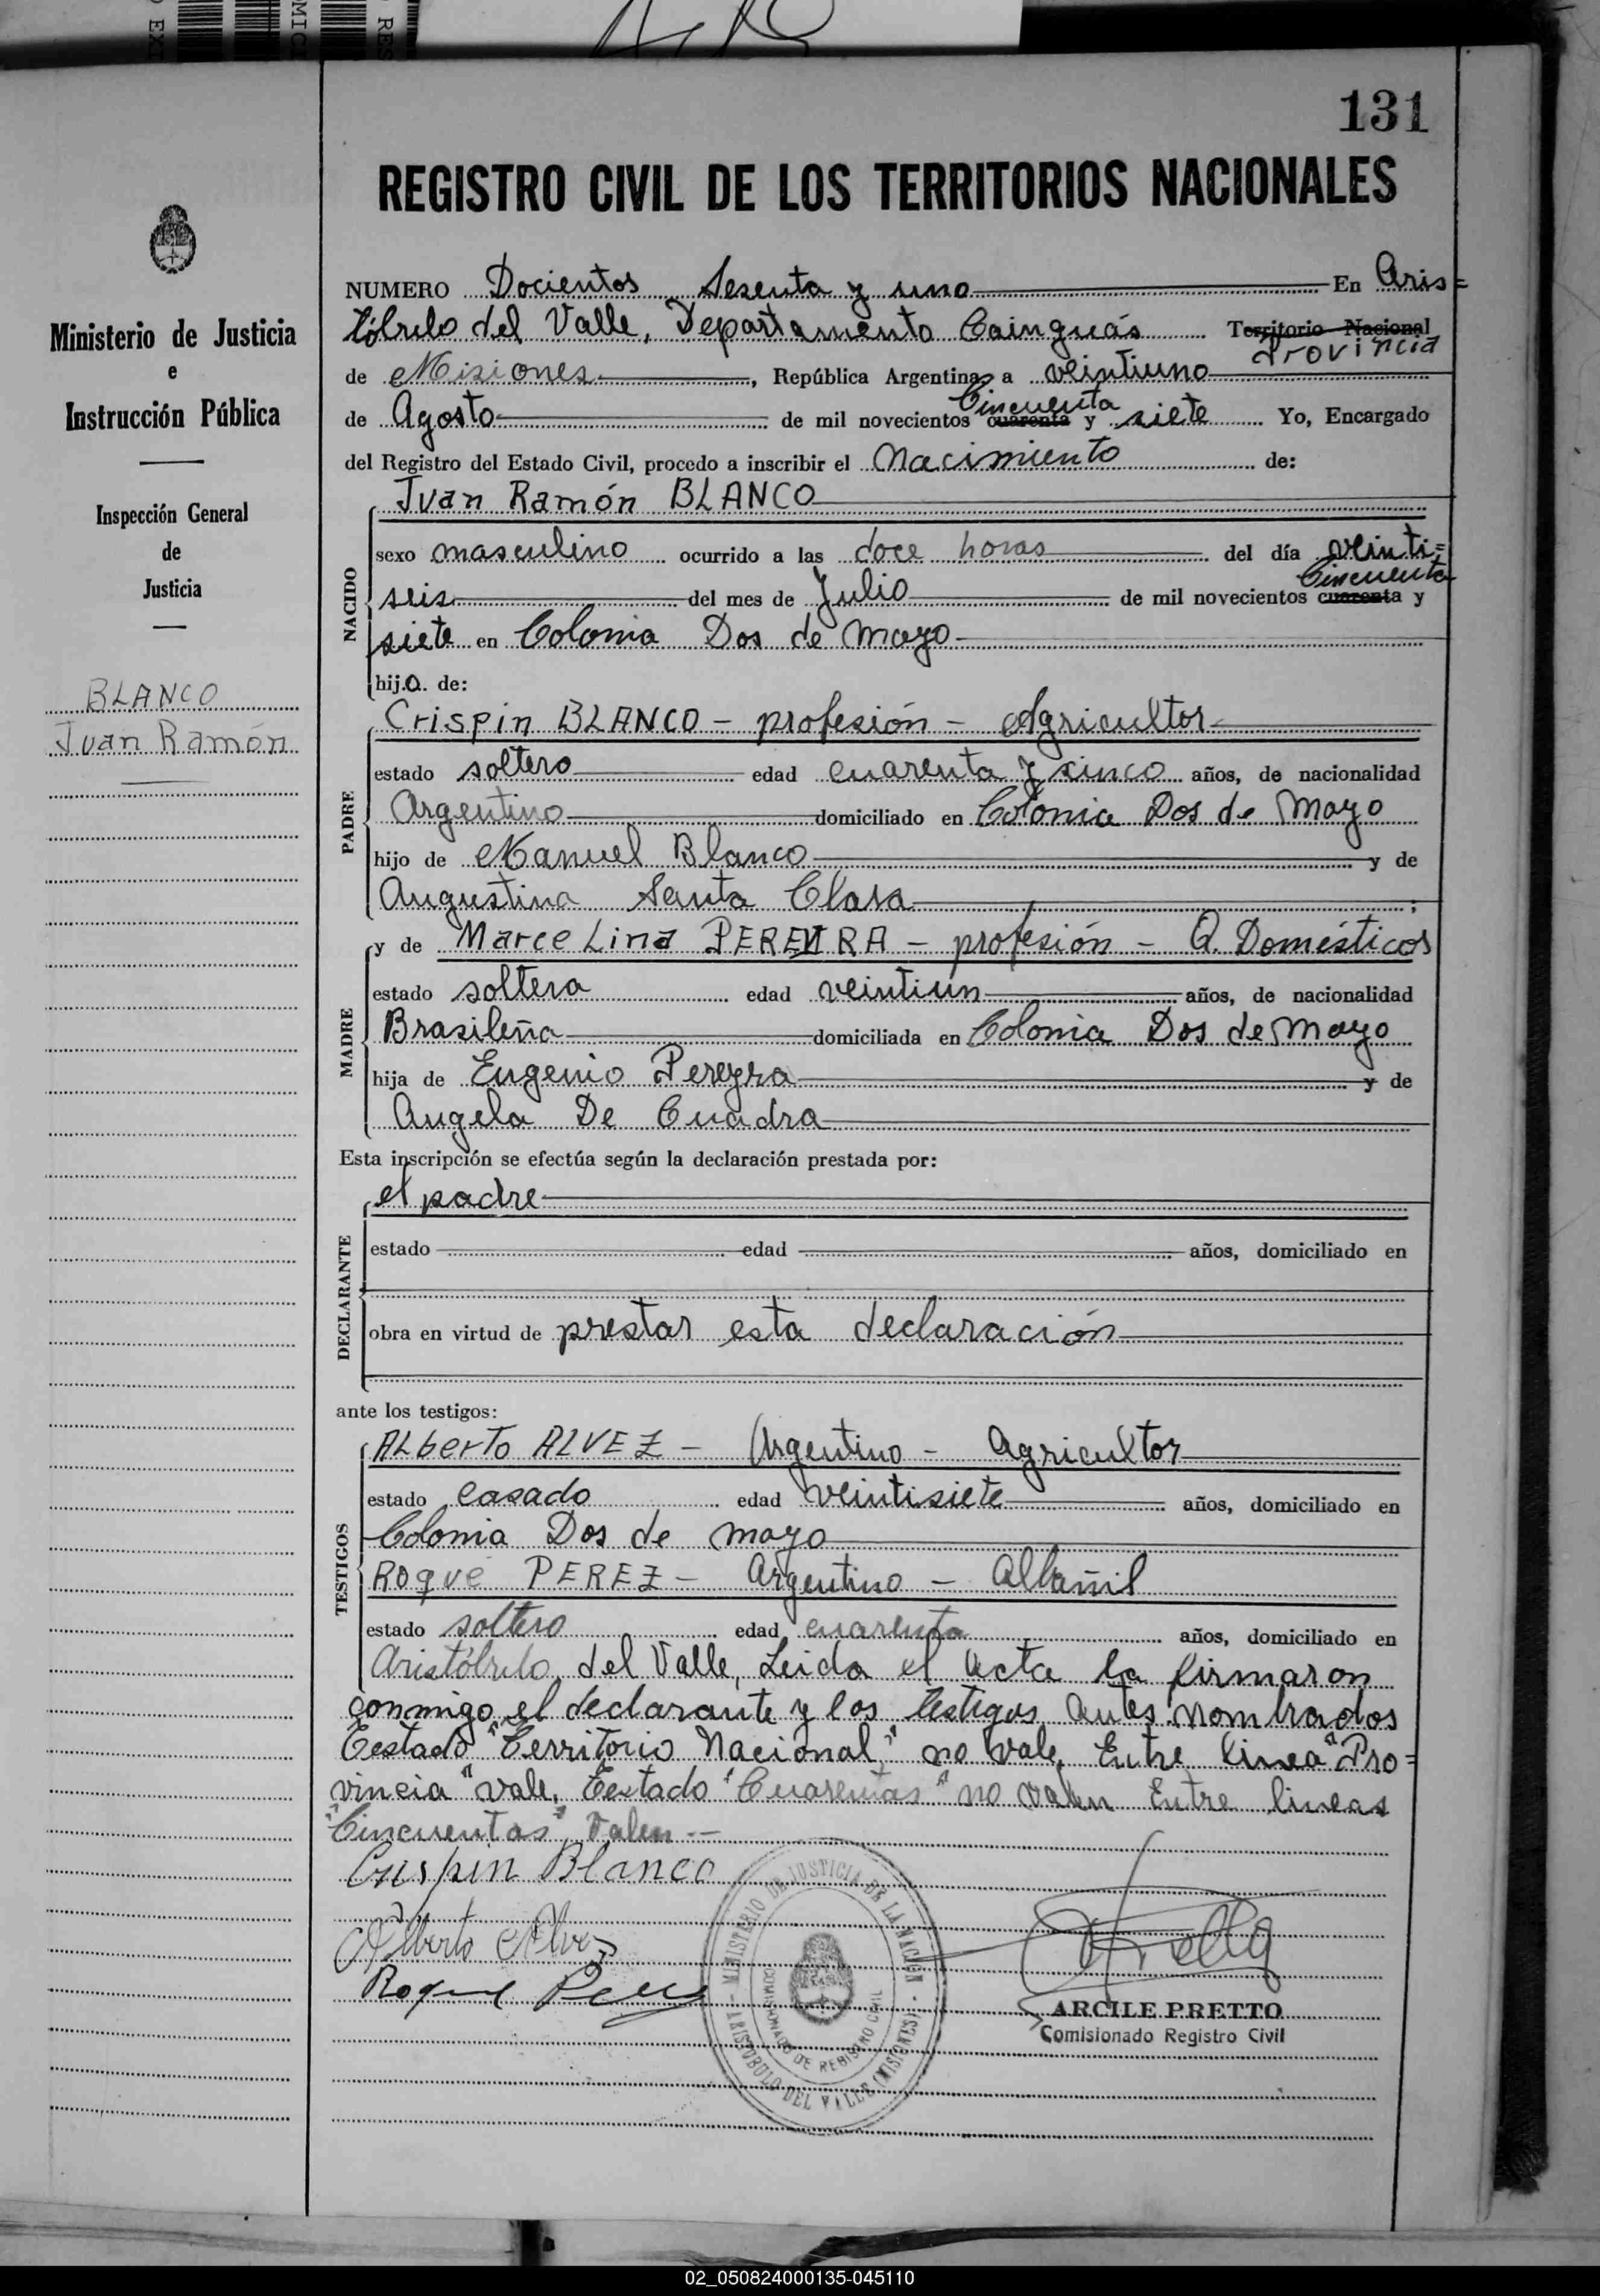 131
REGISTRO CIVIL DE LOS TERRITORIOS NACIONALES
Ministerio de Justicia
e
Instrucción Pública
Inspección General
de
Justicia
BLANCO
Juan Ramón
NUMERO Docientos Sesenta y uno En Aris=
tóbulo del Valle, Departamento Cainguás Territorio Nacional
Provincia
de Misiones, República Argentina, a veintiuno
Cincuenta
de Agosto de mil novecientos cuarenta y siete Yo, Encargado
del Registro del Estado Civil, procedo a inscribir el Nacimiento de:
NACIDO
Juan Ramón BLANCO
sexo masculino ocurrido a las doce horas del día veinti=
Cincuenta
seis del mes de Julio de mil novecientos cuarenta y
siete en Colonia Dos de Mayo
hijo. de:
PADRE
Crispin BLANCO - profesión - Agricultor
estado soltero edad cuarenta y sinco años, de nacionalidad
Argentino domiciliado en Colonia Dos de Mayo
hijo de Manuel Blanco y de
Augustina Santa Clara ;
MADRE
y de MarceLina PEREYRA - profesión - Q. Domésticos
estado soltera edad veintiún años, de nacionalidad
Brasileña domiciliada en Colonia Dos de Mayo
hija de Eugenio Pereyra y de
Angela De Cuadra
Esta inscripción se efectúa según la declaración prestada por:
DECLARANTE
el padre
estado edad años, domiciliado en
obra en virtud de prestar esta declaración
ante los testigos:
TESTIGOS
ALberto ALVEZ - Argentino - Agricultor
estado casado edad veintisiete años, domiciliado en
Colonia Dos de mayo
Roque PEREZ - Argentino - Albañil
estado soltero edad cuarenta años, domiciliado en
Aristóbulo del Valle, Leida el Acta la firmaron
conmigo el declarante y los testigos antes nombrados
Testado "Territorio Nacional" no vale, Entre linea "Pro=
vincia" vale, Testado "Cuarentas" no valen Entre lineas
"Cincuentas" Valen --
Crispin Blanco
Alberto Alvez
Roque Perez
MINISTERIO DE JUSTICIA DE LA NACION
COMISIONADO DE REGISTRO CIVIL
ARISTOBULO DEL VALLE (MISIONES)
ARCILE PRETTO
Comisionado Registro Civil
02_050824000135-045110